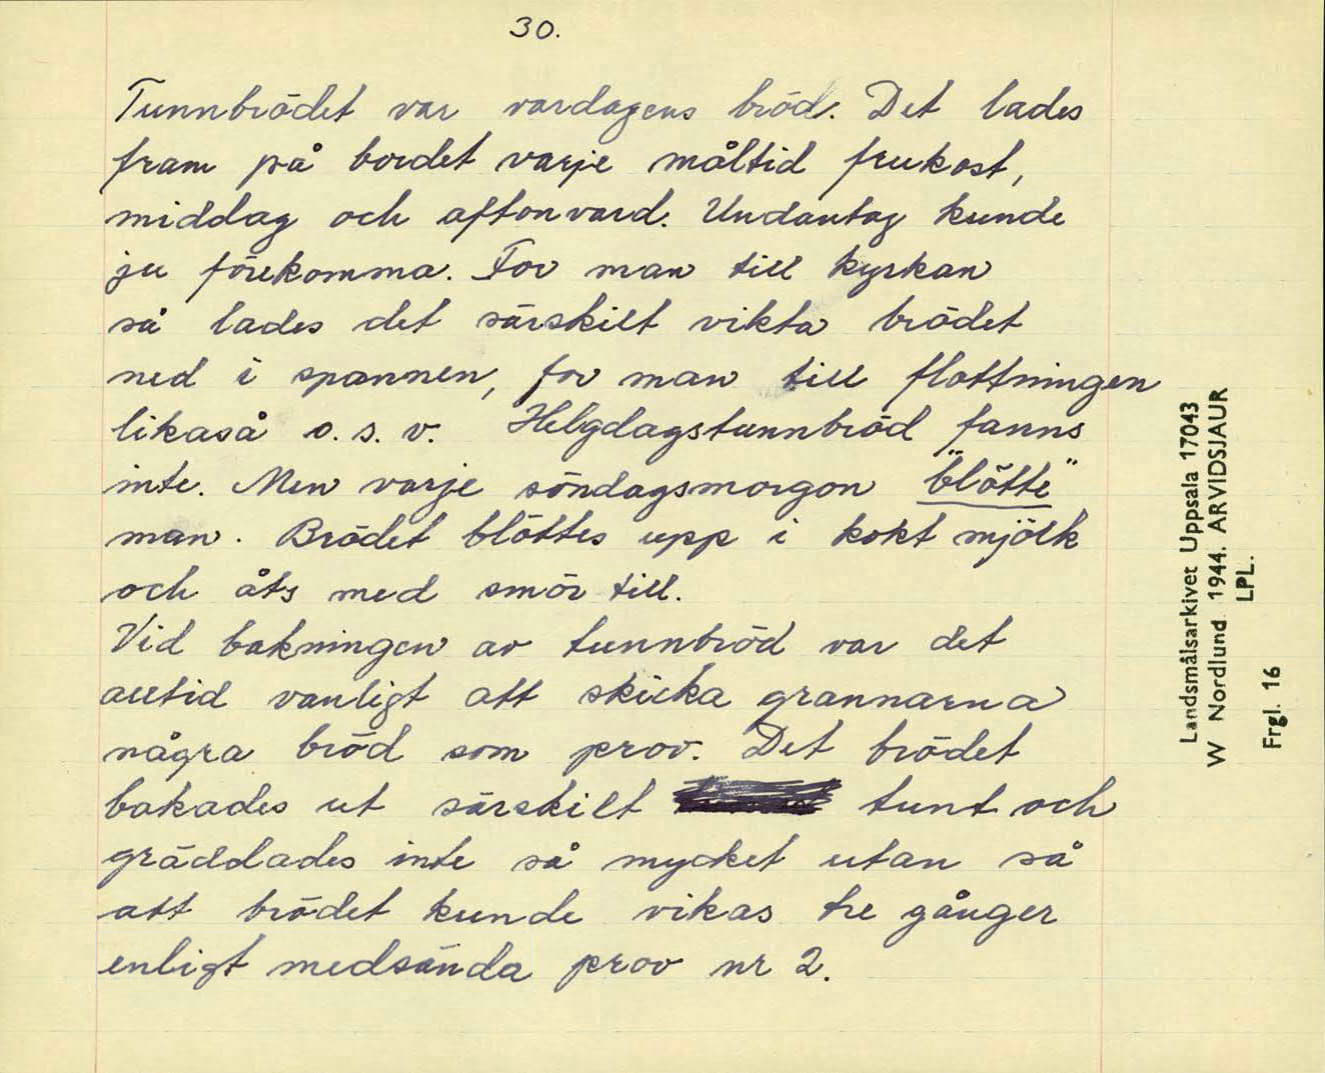 30.
Tunnbrödet var vardagens bröd. Det lades
fram på bordet varje måltid frukost,
middag och aftonvard. Undantag kunde
ju förekomma. For man till kyrkan
så lades det särskilt vikta brödet
ned i spannen, for man till flottningen
likaså o. s. v. Helgdagstunnbröd fanns
inte. Men varje söndagsmorgon "blötte"
man. Brödet blöttes upp i kokt mjölk
och åts med smör till.
Vid bakningen av tunnbröd var det
alltid vanligt att skicka grannarna
några bröd som prov. Det brödet
bakades ut särskilt tunt och
gräddades inte så mycket utan så
att brödet kunde vikas tre gånger
enligt medsända prov nr 2.
Landsmålsarkivet Uppsala 17043
W Nordlund 1944. ARVIDSJAUR
LPL.
Frgl. 16